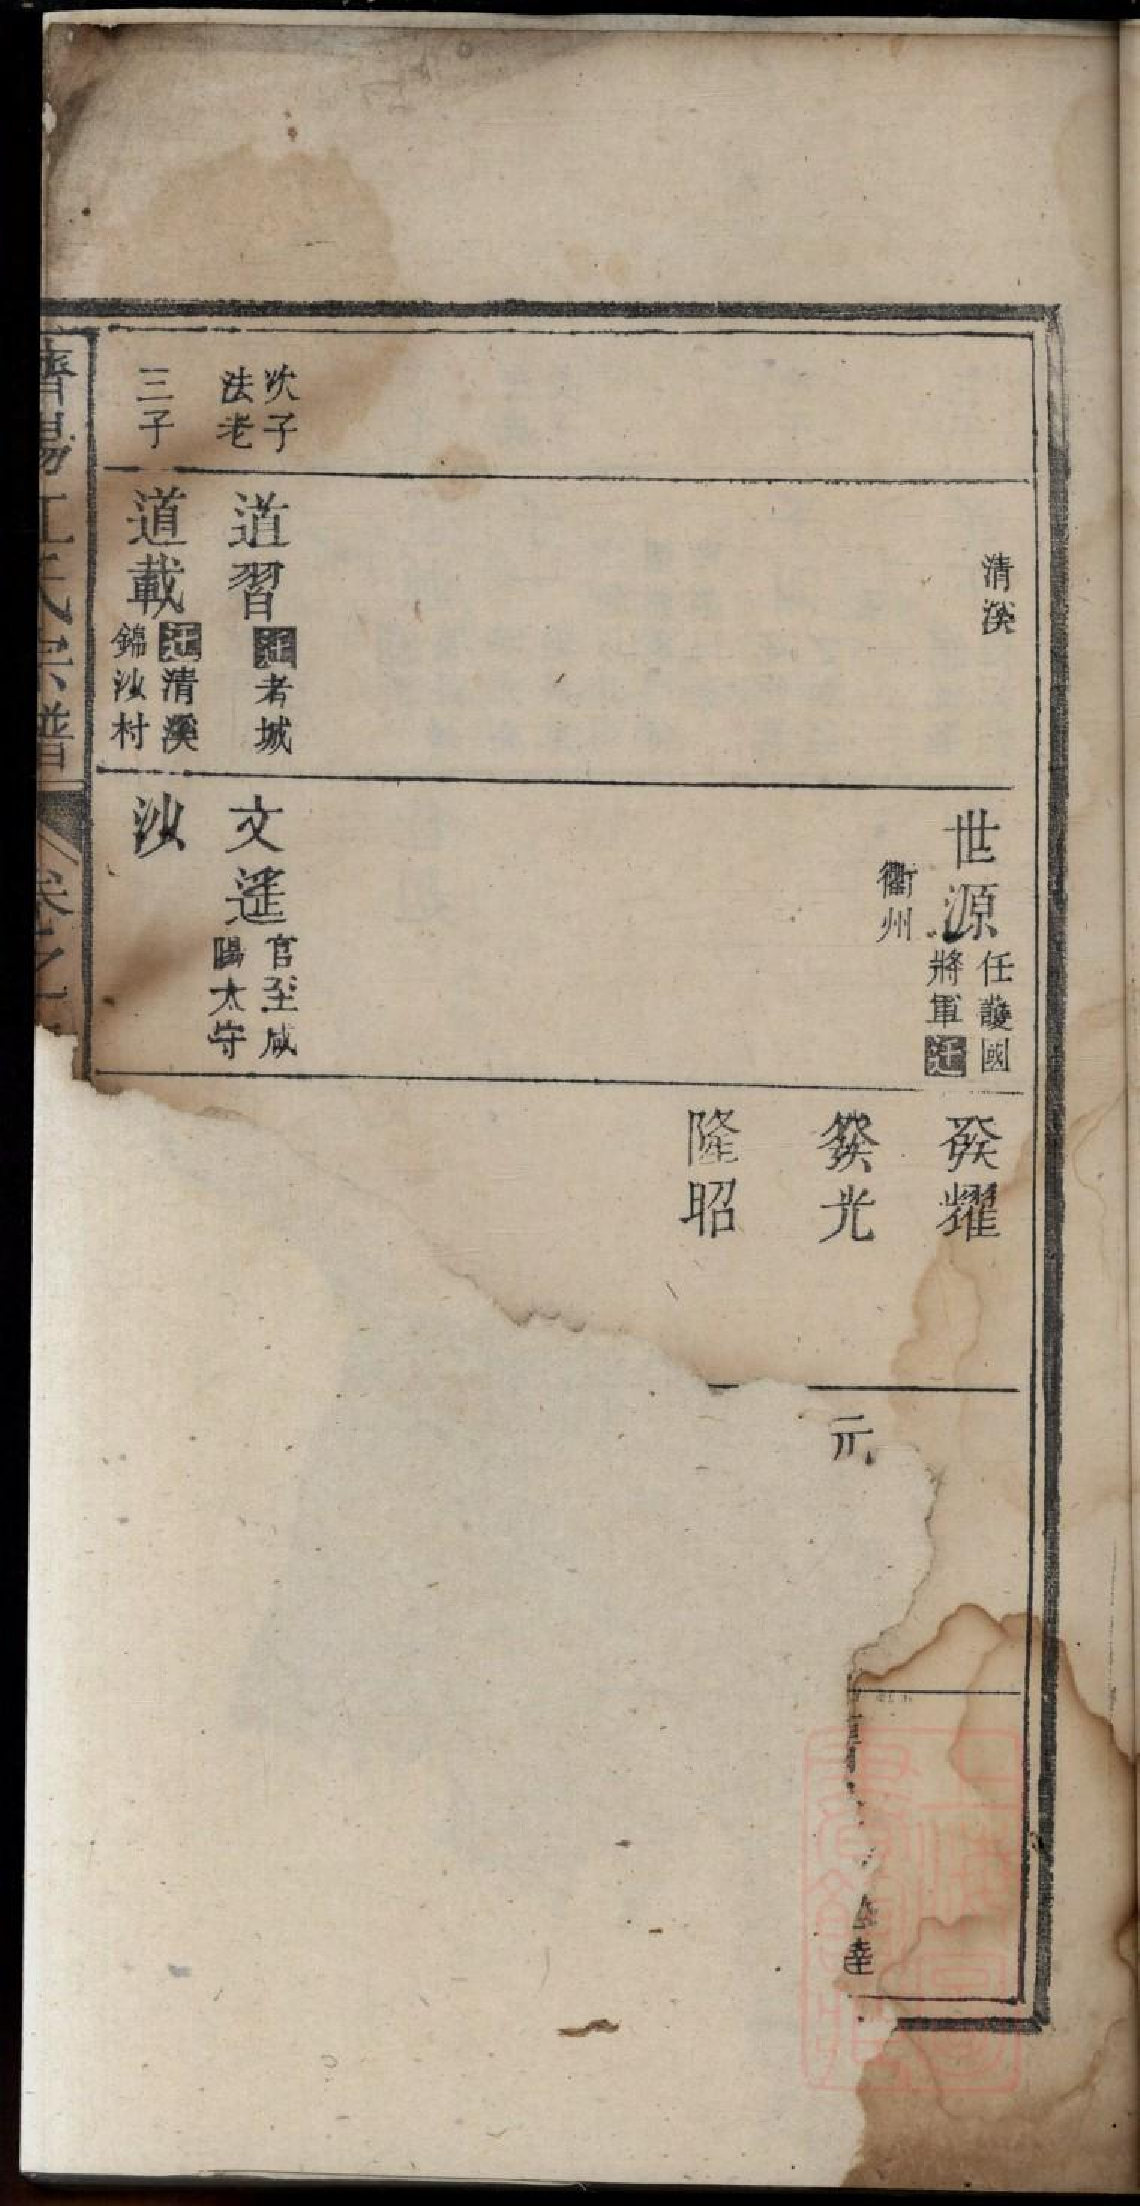 清溪
世源
任護國
將軍迁
衢州
癸耀
癸光
隆昭
元
達
次子
法老
道習
迁者城
文遥
官至咸
陽太守
三子
道載
迁清溪
錦沙村
沙
濟陽江氏宗譜
卷之